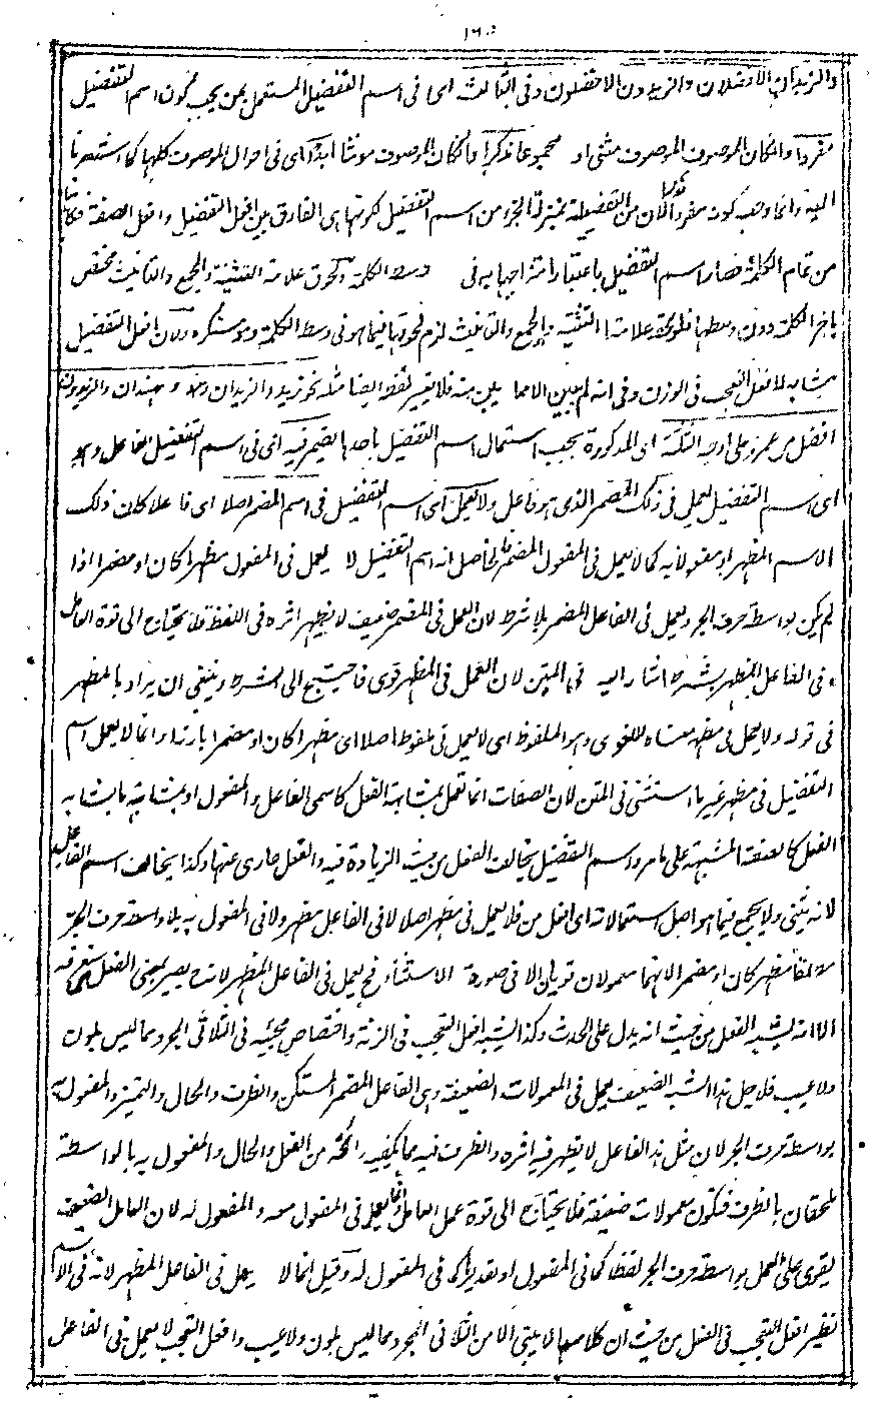 ١٦٥
والزيدان الافضلان والزيدون الافضلون وفى الثالث اى فى اسم التفضيل المستعمل بمن يجب كون اسم التفضيل
مفردا وان كان الموصوف الموصوف مثنى او مجموعا مذكرا وان كان الموصوف مونثا ابدا اى فى احوال الموصوف كلها كما استعرنا
اليه وانما وجب كونه مفردا لان من التفضيلية بمنزلة الجزء من اسم التفضيل لكونها هى الفارق بين افعل التفضيل وافعل الصفة فكانها
من تمام الكلمة فصار اسم التفضيل باعتبار امتزاجها به فى وسط الكلمة ولحوق علامة التثنية والجمع والتانيث مختص
باخر الكلمة دون وسطها فلو لحقه علامتا التثنية والجمع والتانيث لزم لحوقها فيما هو فى وسط الكلمة وهو مستكره ولان افعل التفضيل
مشابه لافعل التعجب فى الوزن وفى انه لم يبن الا مما يبنى منه فلا يغير لفظه ايضا مثله نحو زيد والزيدان وهند و هندان والزيدون
افضل من عمرو على اوجه الثلثة اى المذكورة يجب استعمال اسم التفضيل باحدها يضمر فيه اى فى اسم التفضيل الفاعل وهو
اى اسم التفضيل يعمل فى ذلك المضمر الذى هو فاعل ولا يعمل اى اسم التفضيل فى اسم المضمر اصلا اى فاعلا كان ذلك
الاسم المظهر او مفعولا به كما لا يعمل فى المفعول المضمر فالحاصل انه اسم التفضيل لا يعمل فى المفعول مظهرا كان او مضمرا اذا
لم يكن بواسطة حرف الجر ويعمل فى الفاعل المضمر بلا شرط لان العمل فى المضمر ضعيف لا يظهر اثره فى اللفظ فلا يحتاج الى قوة العامل
وفى الفاعل المظهر بشرط اشار اليه فى المتن لان العمل فى المظهر قوى فاحتيج الى الشرط وينبغى ان يراد بالمظهر
فى قوله ولا يعمل فى مظهر معناه اللغوى وهو الملفوظ اى لا يعمل فى ملفوظ اصلا اى مظهرا كان او مضمرا بارزا وانما لا يعمل اسم
التفضيل فى مظهر غير ما استثنى فى المتن لان الصفات انما تعمل بمشابهة الفعل كاسمى الفاعل والمفعول او بمشابهة ما يشابه
الفعل كالصفة المشبهة على ما مر واسم التفضيل يخالف الفعل من حيث الزيادة فيه والفعل عارى عنها وكذا يخالف اسم الفاعل
لانه يثنى ولا يجمع فيما هو اصل استعمالاته اى افعل من فلا يعمل فى مظهر اصلا لا فى الفاعل مظهر ولا فى المفعول به بلا واسطة حرف الجر
مظهر كان او مضمر الا انهما معمولان قويان الا فى صورة الاستثناء فح يعمل فى الفاعل المظهر لانه ح يصير بمعنى الفعل
الا انه يشبه الفعل من حيث انه يدل على الحدث وكذا يشبه افعل التعجب فى الزنة واختصاص مجيئه فى الثلاثى المجرد مما ليس بلون
ولا عيب فلاجل هذا الشبه الضعيف يعمل فى المعمولات الضعيفة وهى الفاعل المضمر المستكن والظرف والحال والتميز والمفعول به
بواسطة حرف الجر لان مثل هذا الفاعل لا يظهر فيه اثره والظرف فيه مما يكفيه رائحة من الفعل والحال والمفعول به بالواسطة
ملحقان بالظرف فتكون معمولات ضعيفة فلا يحتاج الى قوة عمل العامل وانما يعمل فى المفعول معه والمفعول له لان العامل الضعيف
يقوى على العمل بواسطة حرف الجر لفظا كما فى المفعول او تقديرا كما فى المفعول له وقيل انما لا يعمل فى الفاعل المظهر لانه فى الاسم
نظير افعل التعجب فى الفعل من حيث ان كلا منهما لا يبنى الا من الثلاثى المجرد مما ليس بلون ولا عيب وافعل التعجب لا يعمل فى الفاعل